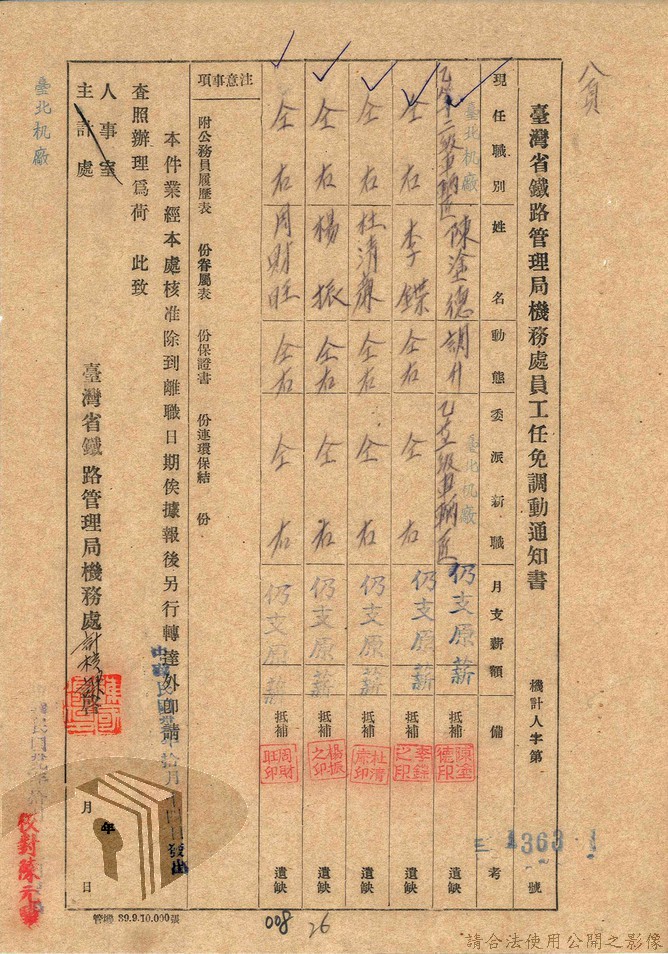 八頁
臺灣省鐵路管理局機務處員工任免調動通知書
機計人字第 1363 號
現任職別
姓名
動態
委派新職
月支薪額
備考
臺北机廠
陳塗德
調升
臺北机廠
仍支原薪
抵補
陳塗德印
遺缺
仝右
李鏷
仝右
仝右
仍支原薪
抵補
遺缺
仝右
杜清
仝右
仝右
仍支原薪
抵補
遺缺
仝右
楊振
仝右
仝右
仍支原薪
抵補
楊振之印
遺缺
仝右
周財旺
仝右
仝右
仍支原薪
抵補
周財旺印
遺缺
注意事項
附公務員履歷表 份眷屬表 份保證書 份連環保結 份
本件業經本處核准除到離職日期俟據報後另行轉達外即請
查照辦理爲荷 此致
人事室
主計處
臺北机廠
臺灣省鐵路管理局機務處
啓
年 月 日
發出
校對陳
管總 39.9.10.000張
008
26
請合法使用公開之影像